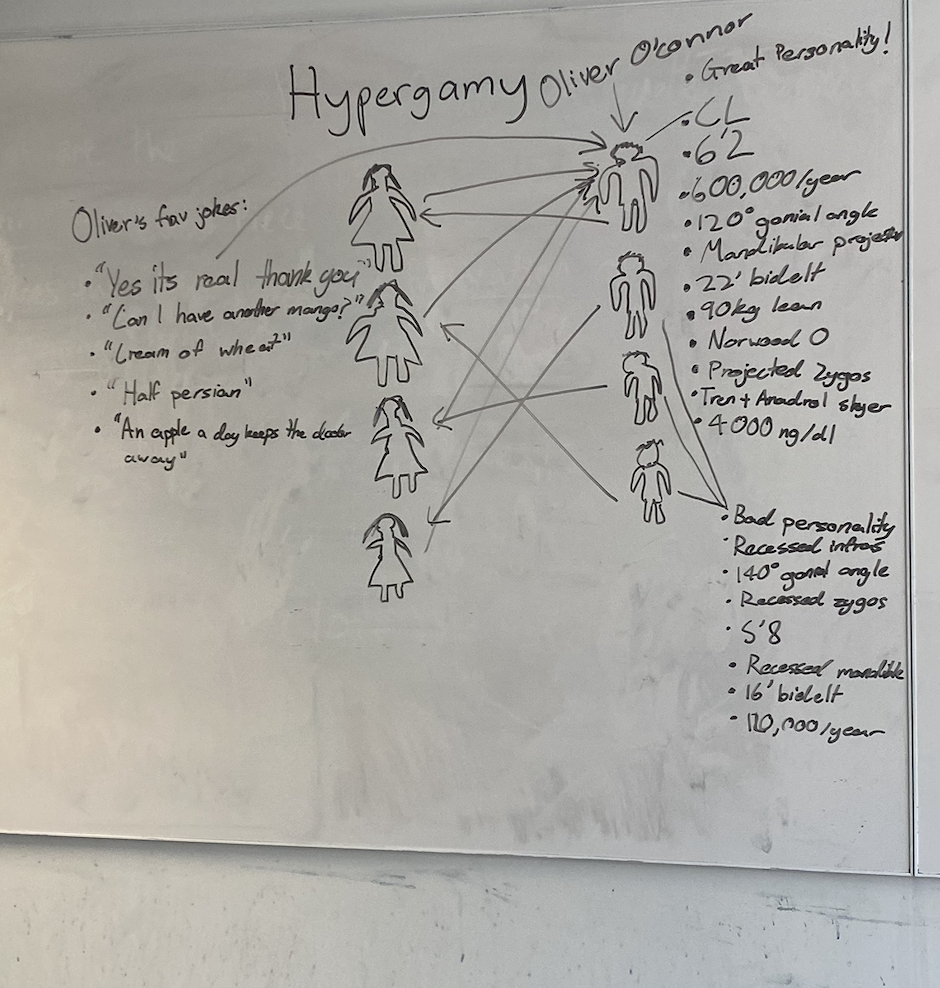 Hypergamy
Oliver O'connor
Oliver's fav jokes:
• "Yes its real thank you"
• "Can I have another mango?"
• "Cream of wheat"
• "Half persian"
• "An apple a day keeps the doctor
away"
• Great Personality!
• CL
• 6'2
• 600,000/year
• 120° gonial angle
• Mandibular projector
• 22' bidelt
• 90kg lean
• Norwood 0
• Projected Zygos
• Tren + Anadrol slyer
• 4000 ng/dl
• Bad personality
• Recessed infras
• 140° gonial angle
• Recessed zygos
• 5'8
• Recessed mandible
• 16' bidelt
• 120,000/year